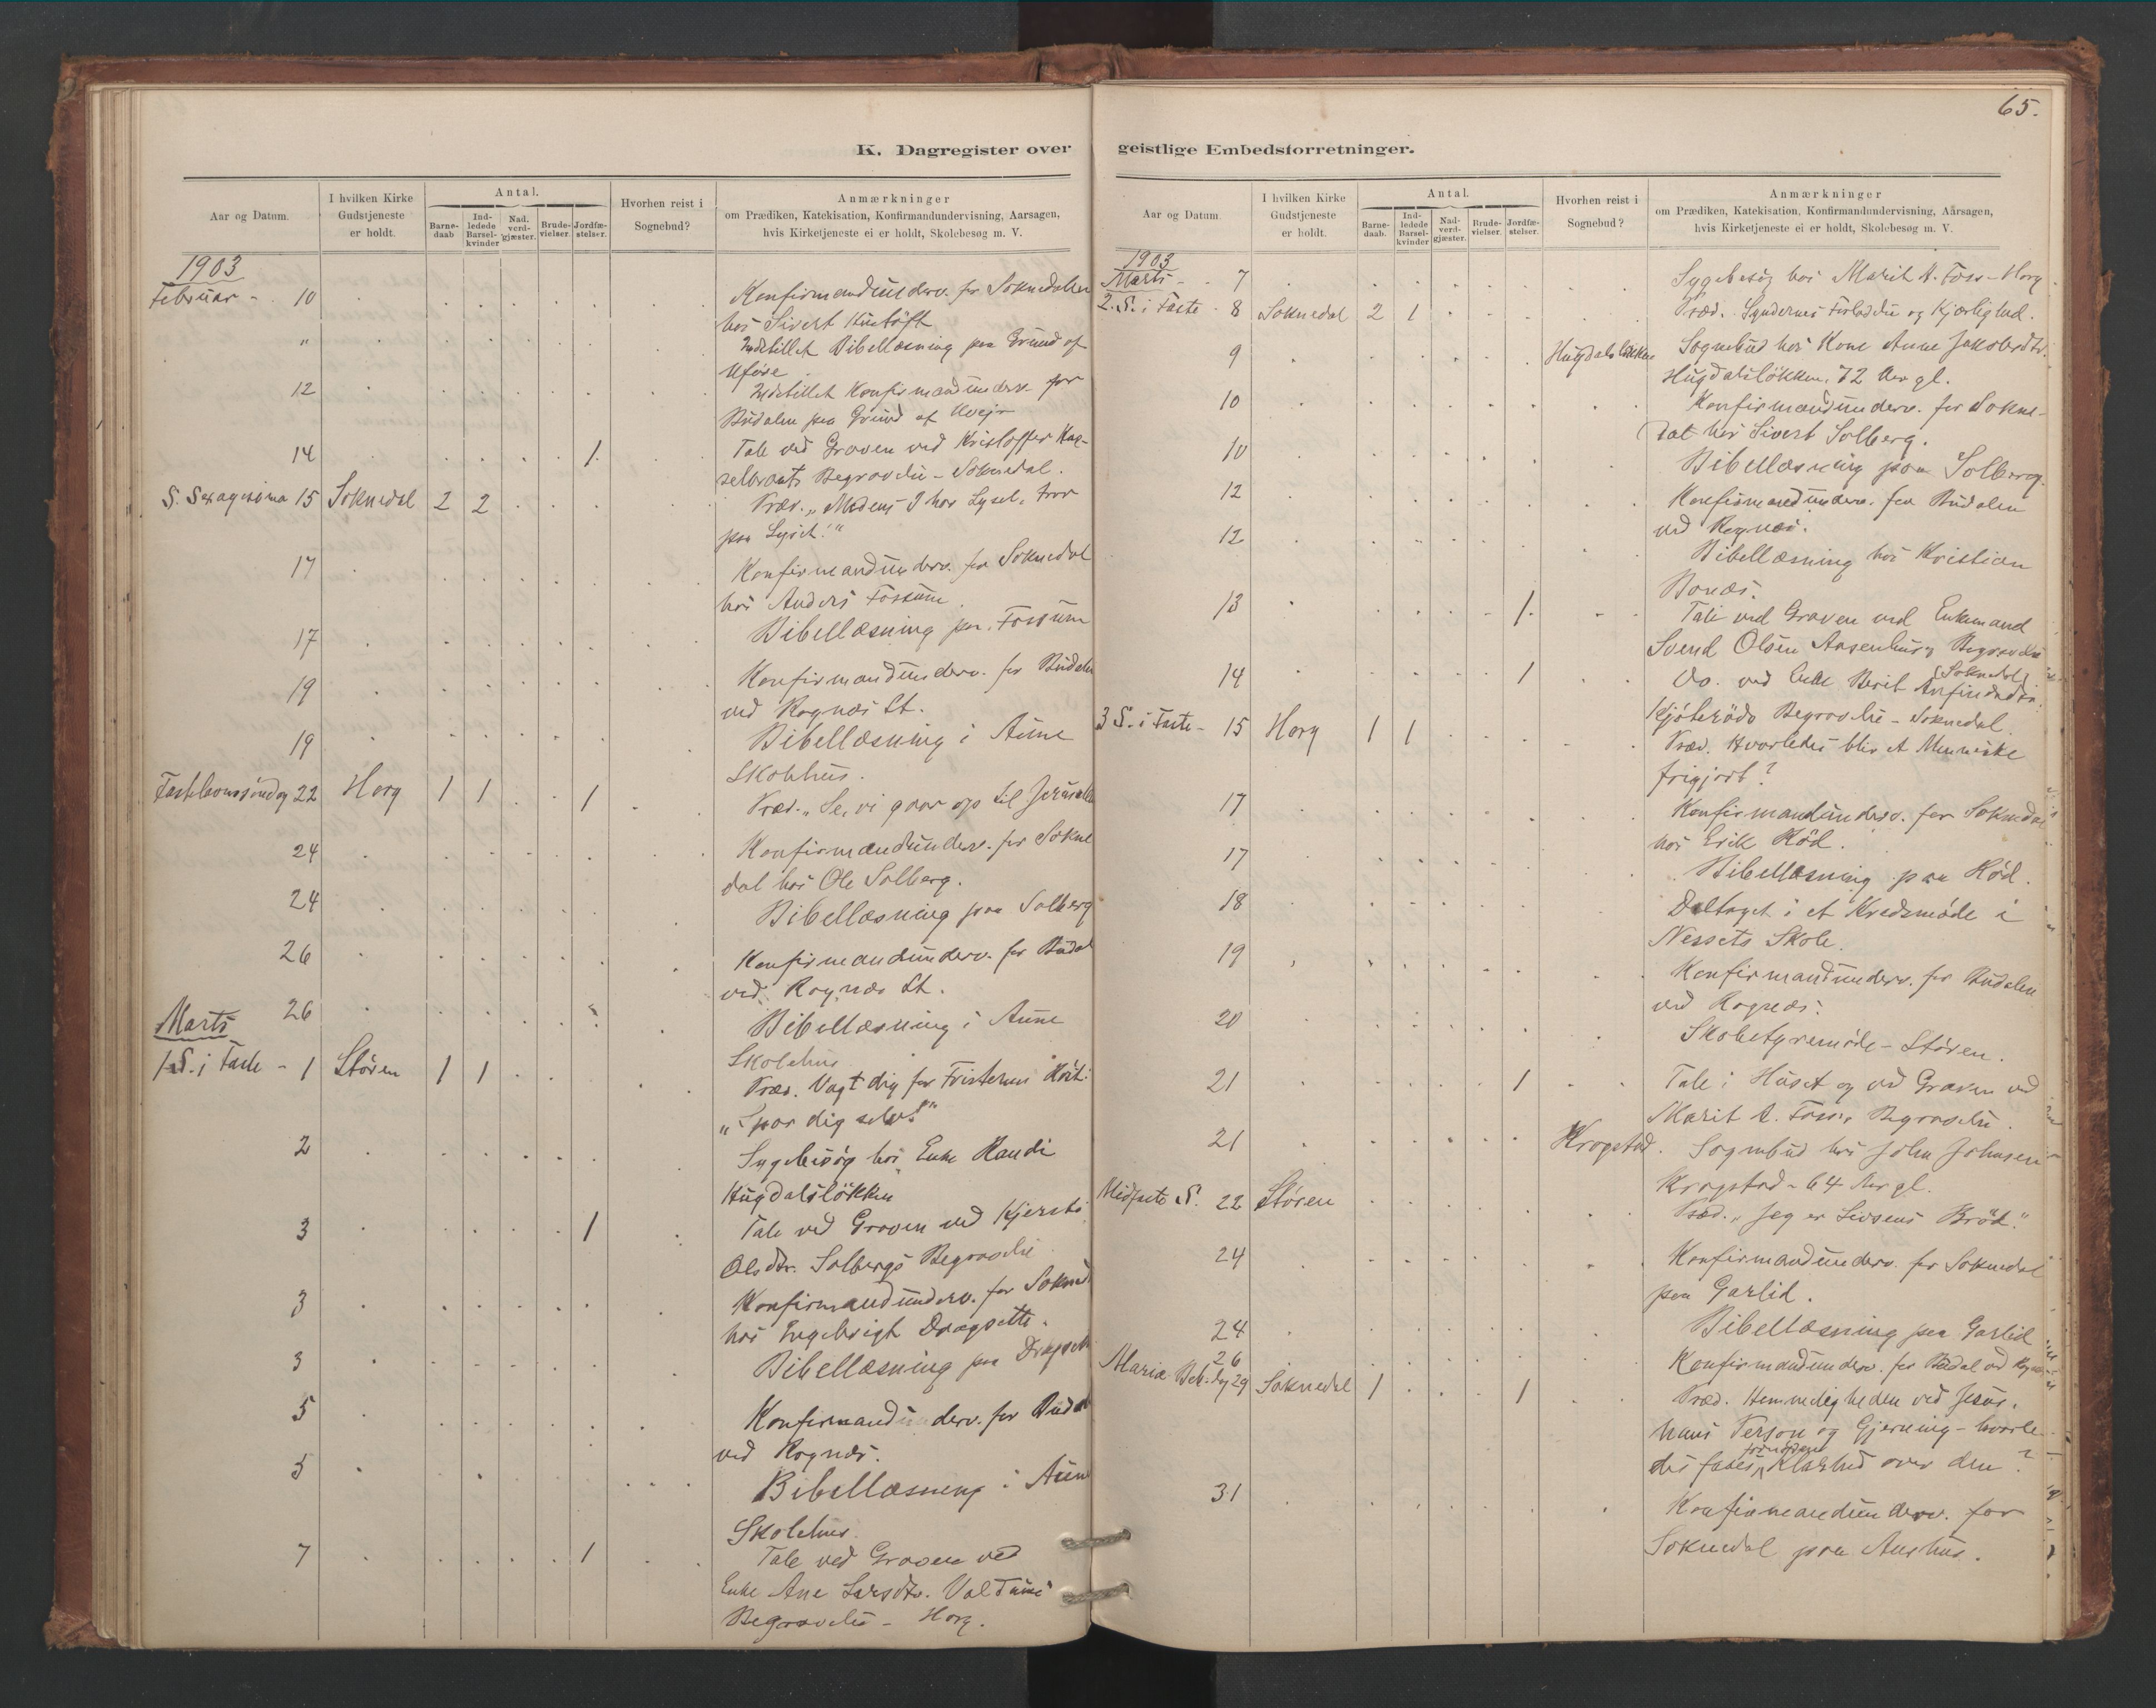 65.
K. Dagregister over
Aar og Datum.
I hvilken Kirke Gudstjeneste er holdt.
Antal.
Barne-daab
Ind-ledede Barsel-kvinder
Nad. verd-gjæster.
Brude-vielser.
Jordfæ-stelser.
Hvorhen reist i Sognebud?
Anmærkninger
om Prædiken, Katekisation, Konfirmandundervisning, Aarsagen,
hvis Kirketjeneste ei er holdt, Skolebesøg m. V.
1903
Februar - 10 Konfirmandunderv. for Soknedalen
hos Sivert
" Indstillet Bibellæsning paa Grund af
Uføre
12 Indstillet Konfirmandunderv. for
Budalen paa Grund af Uveir
14 1. Tale ved Graven ved Kristoffer
Begravelse - Soknedal.
S. Sexagesima 15 Soknedal 2 2 Præd. "Medens I har Lyset, tror
paa Lyset!"
17 Konfirmandunderv. for Soknedal
hos Anders Fossum
17 Bibellæsning paa Fossum
19 Konfirmandunderv. for Budalen
ved Rognæs St.
19 Bibellæsning i Aune
Skolehus.
Fastelavnssøndag 22 Horg 1 1 1 Præd. "Se, vi gaar op til Jerusalem
24 Konfirmandunderv. for Sokne
dal hos Ole Solberg.
24 Bibellæsning paa Solberg
26 Konfirmandunderv. for Budal
ved Rognæs St.
26 Bibellæsning i Aune
Skolehus
Marts
1 S. i Faste - 1 Støren 1 1 Præd. Vogt dig for Fristerens Røst:
"Spar dig selv!"
2 Sygebesøg hos Enke Randi
Hugdalsløkken
3 1 Tale ved Graven ved Kjersti
Olsdtr. Solbergs Begravelse
3 Konfirmandunderv. for Sokned
hos Engebrigt Dragsette.
3 Bibellæsning paa Dragset
5 Konfirmandunderv. for Budal
ved Rognæs.
5 Bibellæsning i Aune
Skolehus.
7 1 Tale ved Graven ved
Enke Ane Larsdtr.
Begravelse - Horg.
geistlige Embedsforretninger.
Aar og Datum.
I hvilken Kirke Gudstjeneste er holdt.
Antal.
Barne-daab.
Ind-ledede Barsel-kvinder
Nad-verd-gjæster.
Brude-vielser.
Jordfæ-stelser.
Hvorhen reist i Sognebud?
Anmærkninger
om Prædiken, Katekisation, Konfirmandundervisning, Aarsagen,
hvis Kirketjeneste ei er holdt, Skolebesøg m. V.
1903
Marts - 7 Sygebesøg hos Marit A. Foss - Horg
2. S. i Faste - 8 Soknedal 2 1 Præd. Syndernes Forladelse og Kjærlighed.
9 Hugdalsløkken Sognebud hos Kone Anne Jakobsdtr.
Hugdalsløkken, 72 Aar gl.
10 Konfirmandunderv. for Sokne-
dal hos Sivert Solberg.
10 Bibellæsning paa Solberg.
12 Konfirmandunderv. for Budalen
ved Rognæs.
12 Bibellæsning hos Kristian
Bonæs.
13 1. Tale ved Graven ved Enkemand
Svend Olsen Aasenhus Begravelse
(Soknedal)
14 1 Do. ved Enke Berit Arfindsdtr.
Begravelse - Soknedal.
3 S. i Faste - 15 Horg 1 1 Præd. Hvorledes blir et Menneske
frigjort?
17 Konfirmandunderv. for Soknedal
hos Erik Rød.
17 Bibellæsning paa Rød.
18 Deltaget i et Kredsmøde i
Nessets Skole.
19 Konfirmandunderv. for Budalen
ved Rognæs.
20 Skolestyremøde - Støren.
21 1 Tale i Huset og ved Graven ved
Marit A. Foss's Begravelse.
21 Krogstad. Sognebud hos John Johnsen
Krogstad - 64 Aar gl.
Midfaste S. 22 Støren Præd. "Jeg er Livsens Brød."
24 Konfirmandunderv. for Soknedal
paa Garlid.
24 Bibellæsning paa Garlid
26 Konfirmandunderv. for Budal ved Rognæs
Mariæ Beb. dag 29 Soknedal 1 1 Præd. Hemmeligheden ved Jesus,
hans Person og Gjerning - hvorle-
des faaes fornøden Klarhed over den?
31 Konfirmandunderv. for
Soknedal paa Aushus.